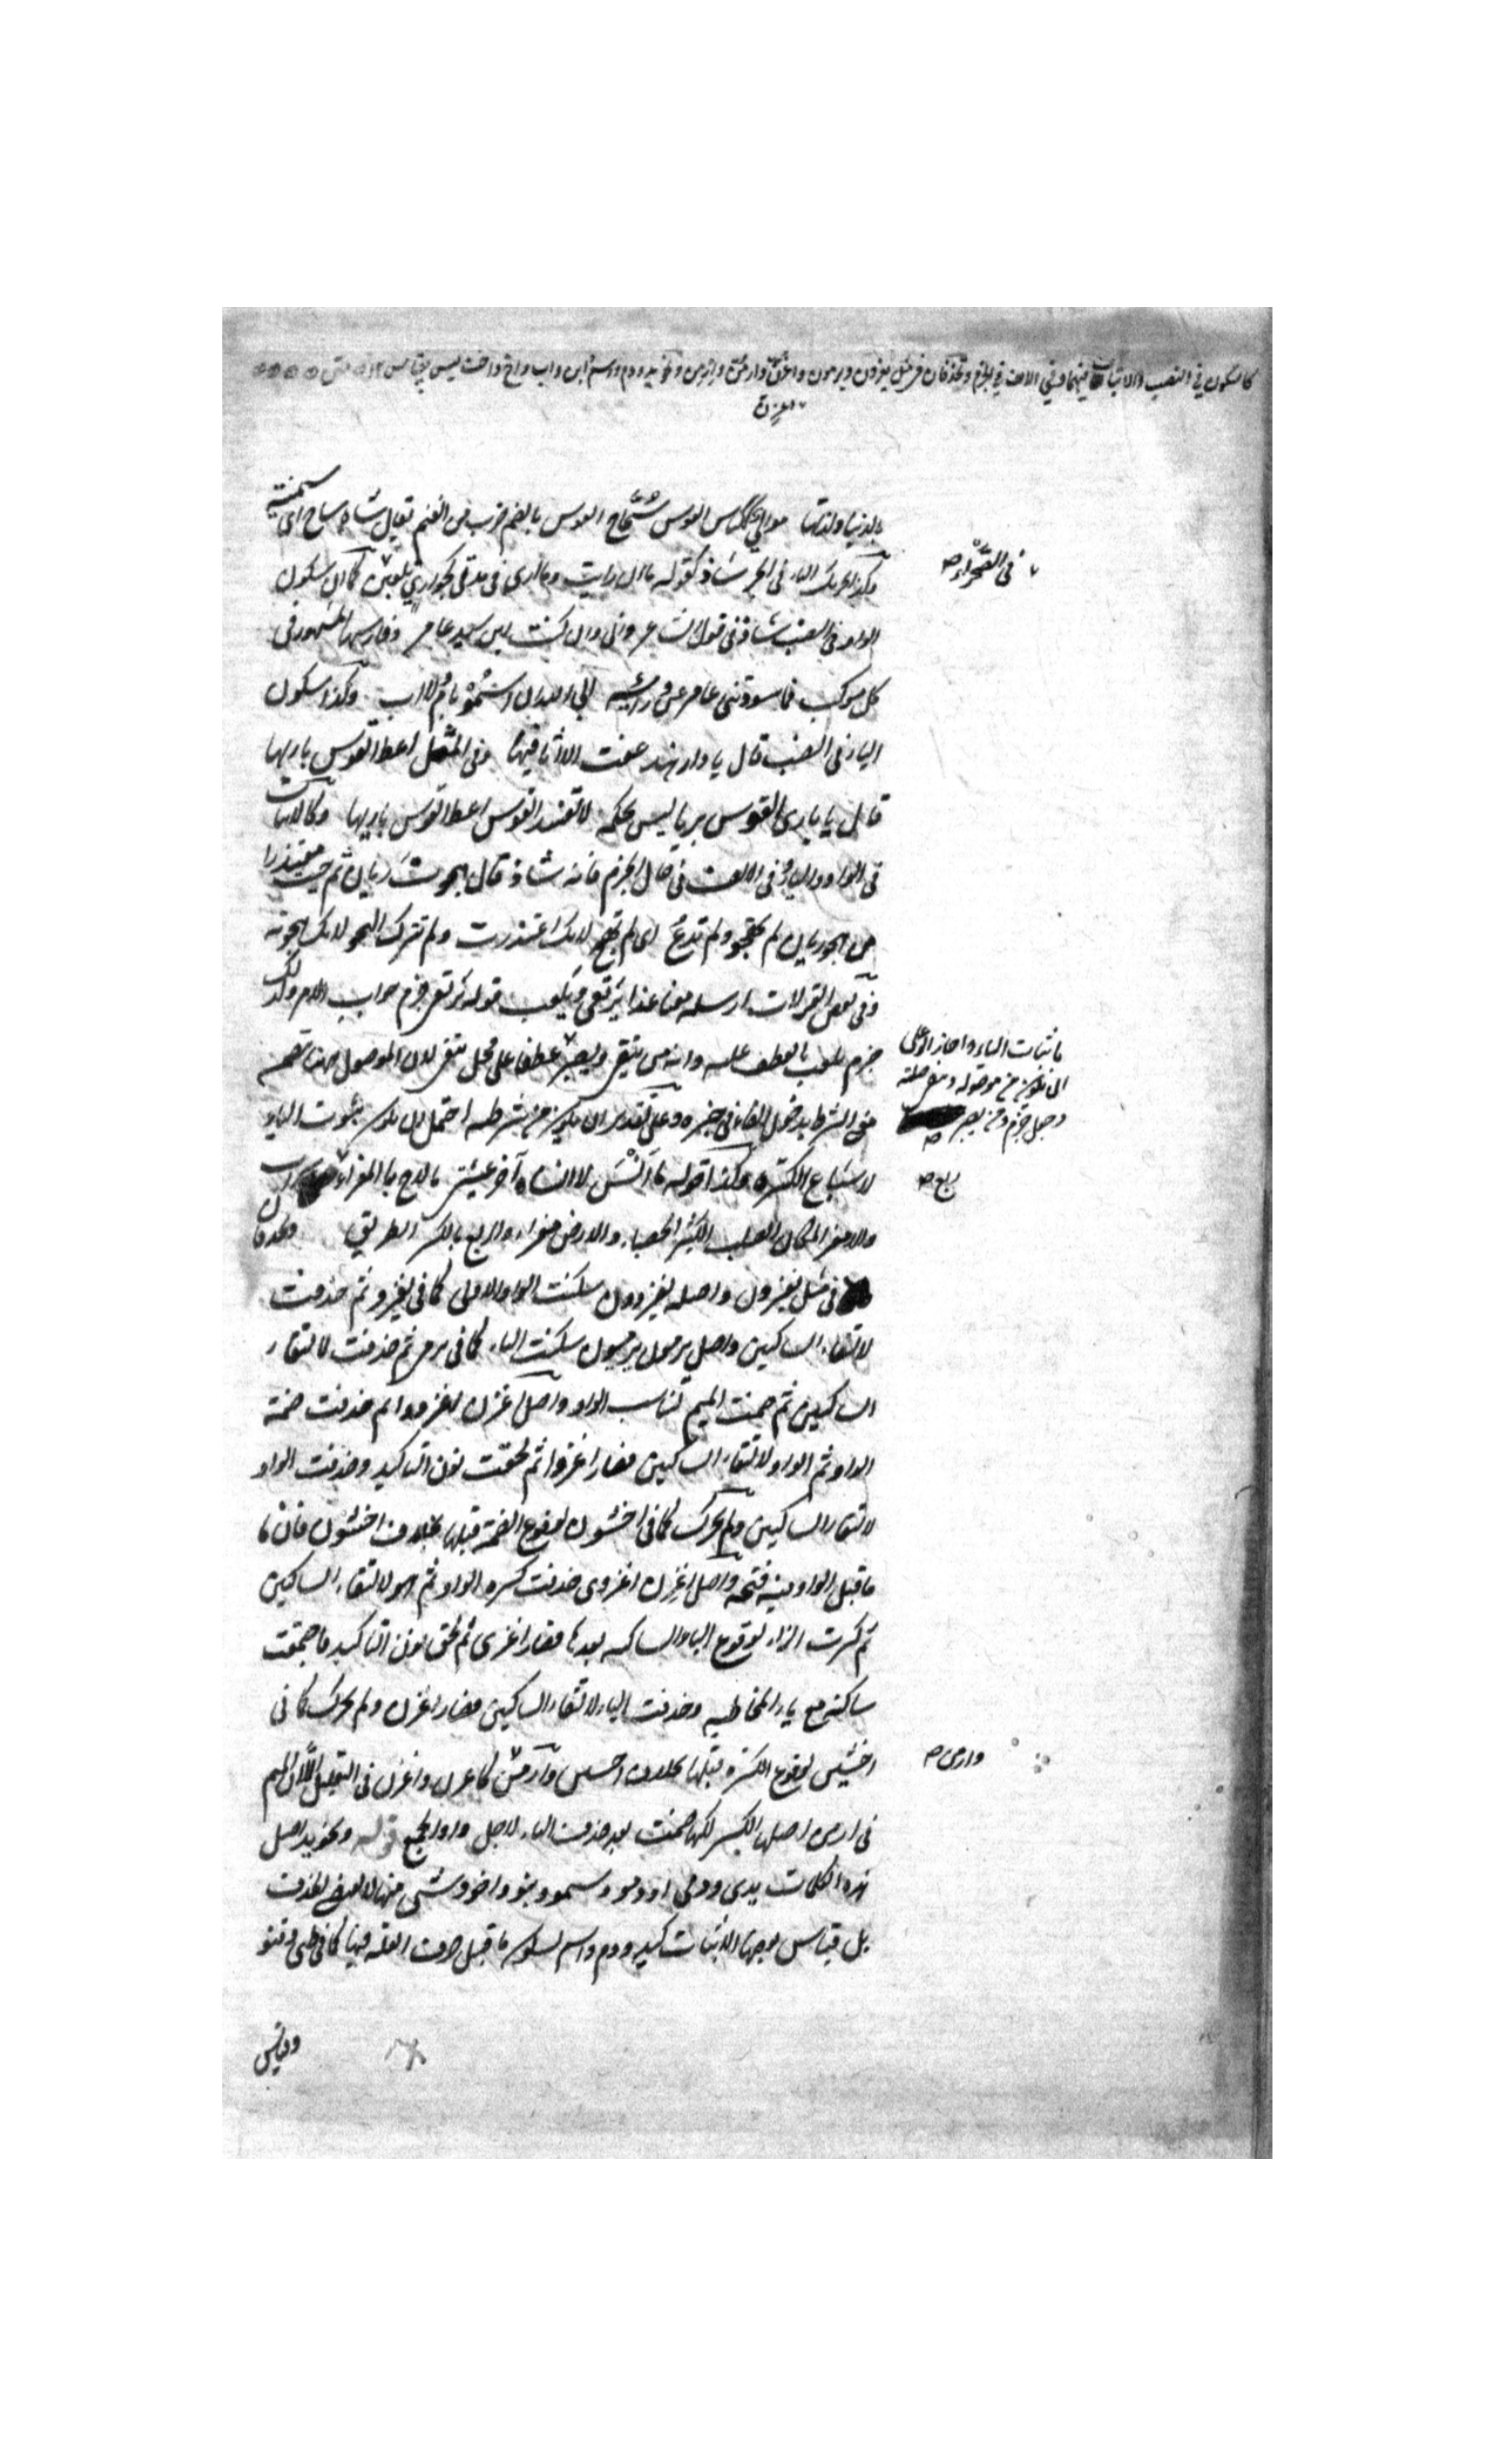 كالسكون في النصب والاثبات فيهما وفي الالف في الجزم وتحذفان في مثل يغزون ويرمون واغزن وارمن وارمن ونحو يد ودم واسم وابن واب واخ واخت ليس بقياس
اغزن
بالدنيا ولذتها موالي ككباش العوس سحاح العوس بالضم ضرب من الغنم يقال شاة ساح اي سمنت
وكذا تحريك الياء في الجر شاذ كقوله ما ان رايت ولا ارى في مدتي كجواري يلعبن كما ان سكون
الواو في النصب شاذ في قول الشاعر واني وان كنت ابن سيد عامر وفارسها المشهور في
كل موكب فما سودتني عامر عن وراثة ابى الله ان اسمو بام ولا اب وكذا سكون
الياء في النصب قال يا دار هند عفت الا اثافيها وفي المثل اعط القوس باريها
قال يا باري القوس بريا ليس يحكمه لا تفسد القوس اعط القوس باريها وكالاثبات
في الواو والياء وفي الالف في حال الجزم فانه شاذ قال هجوت زبان ثم جئت معتذرا
من هجو زبان لم تهجو ولم تدع اي لم تهج لانك اعتذرت ولم تترك الهجو لانك هجوته
وفي بعض القراءات ارسله معنا غدا يرتعي ويلعب قوله يرتعي جزم جواب الامر وكذلك
جزم يلعب بالعطف عليه وانه من يتقي ويصبر عطفا على محل يتقي لان الموصول هنا تضمن
معنى الشرط بدخول الفاء في خبره وعلى تقدير ان يكون من شرطية احتمل ان يكون ثبوت الياء
لاشباع الكسرة وكذا قوله ما انس لا انساه آخر عيشتي ما لاح بالمعزاء ريع سراب
والامعز المكان الصلب الكثير الحصباء والارض معزاء والريع بالكسر الطريق وتحذفان
في مثل يغزون واصله يغزوون سكنت الواو الاولى كما في يغزو ثم حذفت
لالتقاء الساكنين واصل يرمون يرميون سكنت الياء كما في يرمي ثم حذفت لالتقاء
الساكنين ثم ضمت الميم لتناسب الواو واصل اغزن اغزووا ثم حذفت ضمة
الواو ثم الواو لالتقاء الساكنين فصار اغزوا ثم لحقت نون التاكيد وحذفت الواو
لالتقاء الساكنين ولم تحرك كما في اخشون لوقوع الضمة قبلها بخلاف اخشون فان ما
ما قبل الواو فيه فتحة واصل اغزن اغزوي حذفت كسرة الواو ثم الواو لالتقاء الساكنين
ثم كسرت الزاء لوقوع الياء الساكنة بعدها فصار اغزي ثم لحق نون التاكيد فاجتمعت
ساكنة مع ياء المخاطبة وحذفت الياء لالتقاء الساكنين فصار اغزن ولم تحرك كما في
اخشين لوقوع الكسرة قبلها بخلاف اخشين وارمن كاغزن واغزن في التعليل الا ان الميم
في ارمن اصلها الكسر لكنها ضمت بعد حذف الياء لاجل واو الجمع قوله ونحو يد اصل
هذه الكلمات يدي ودمي او دمو وسمو وبنو واخو وشيء منها لا يقتضي الحذف
بل قياس بعضها الاثبات كيد ودم واسم لسكون ما قبل حرف العلة فيها كما في ظبي وقنو
وقياس
في الصحراء صح
باثبات الياء واجاز ابو علي
ان يكون من موصولة ويتقي صلته
وجعل جزم يصبر
صح
ريع صح
وارمن صح